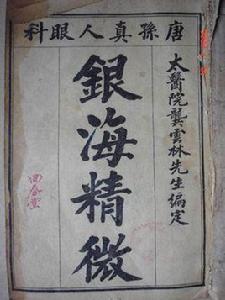 唐孫真人眼科
太醫院龔雲林先生編定
銀海精微